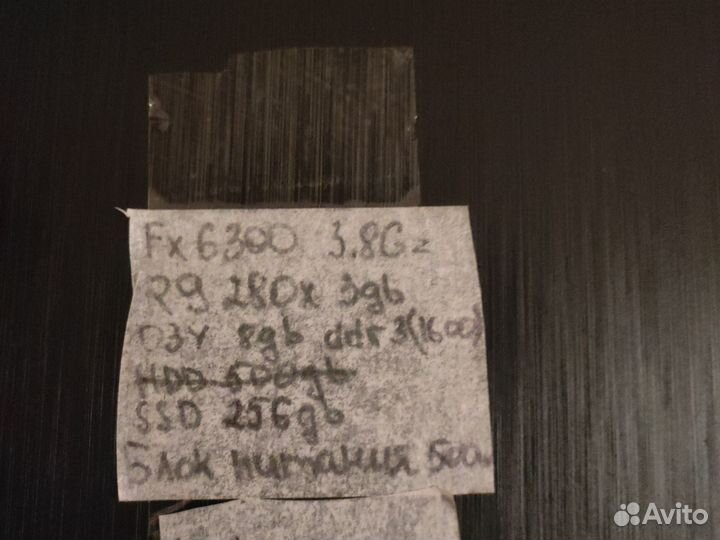 Fx 6300 3.8Gz
R9 280x 3gb
ОЗУ 8gb ddr3(1600)
HDD 500gb
SSD 256gb
блок питания 500w
Avito